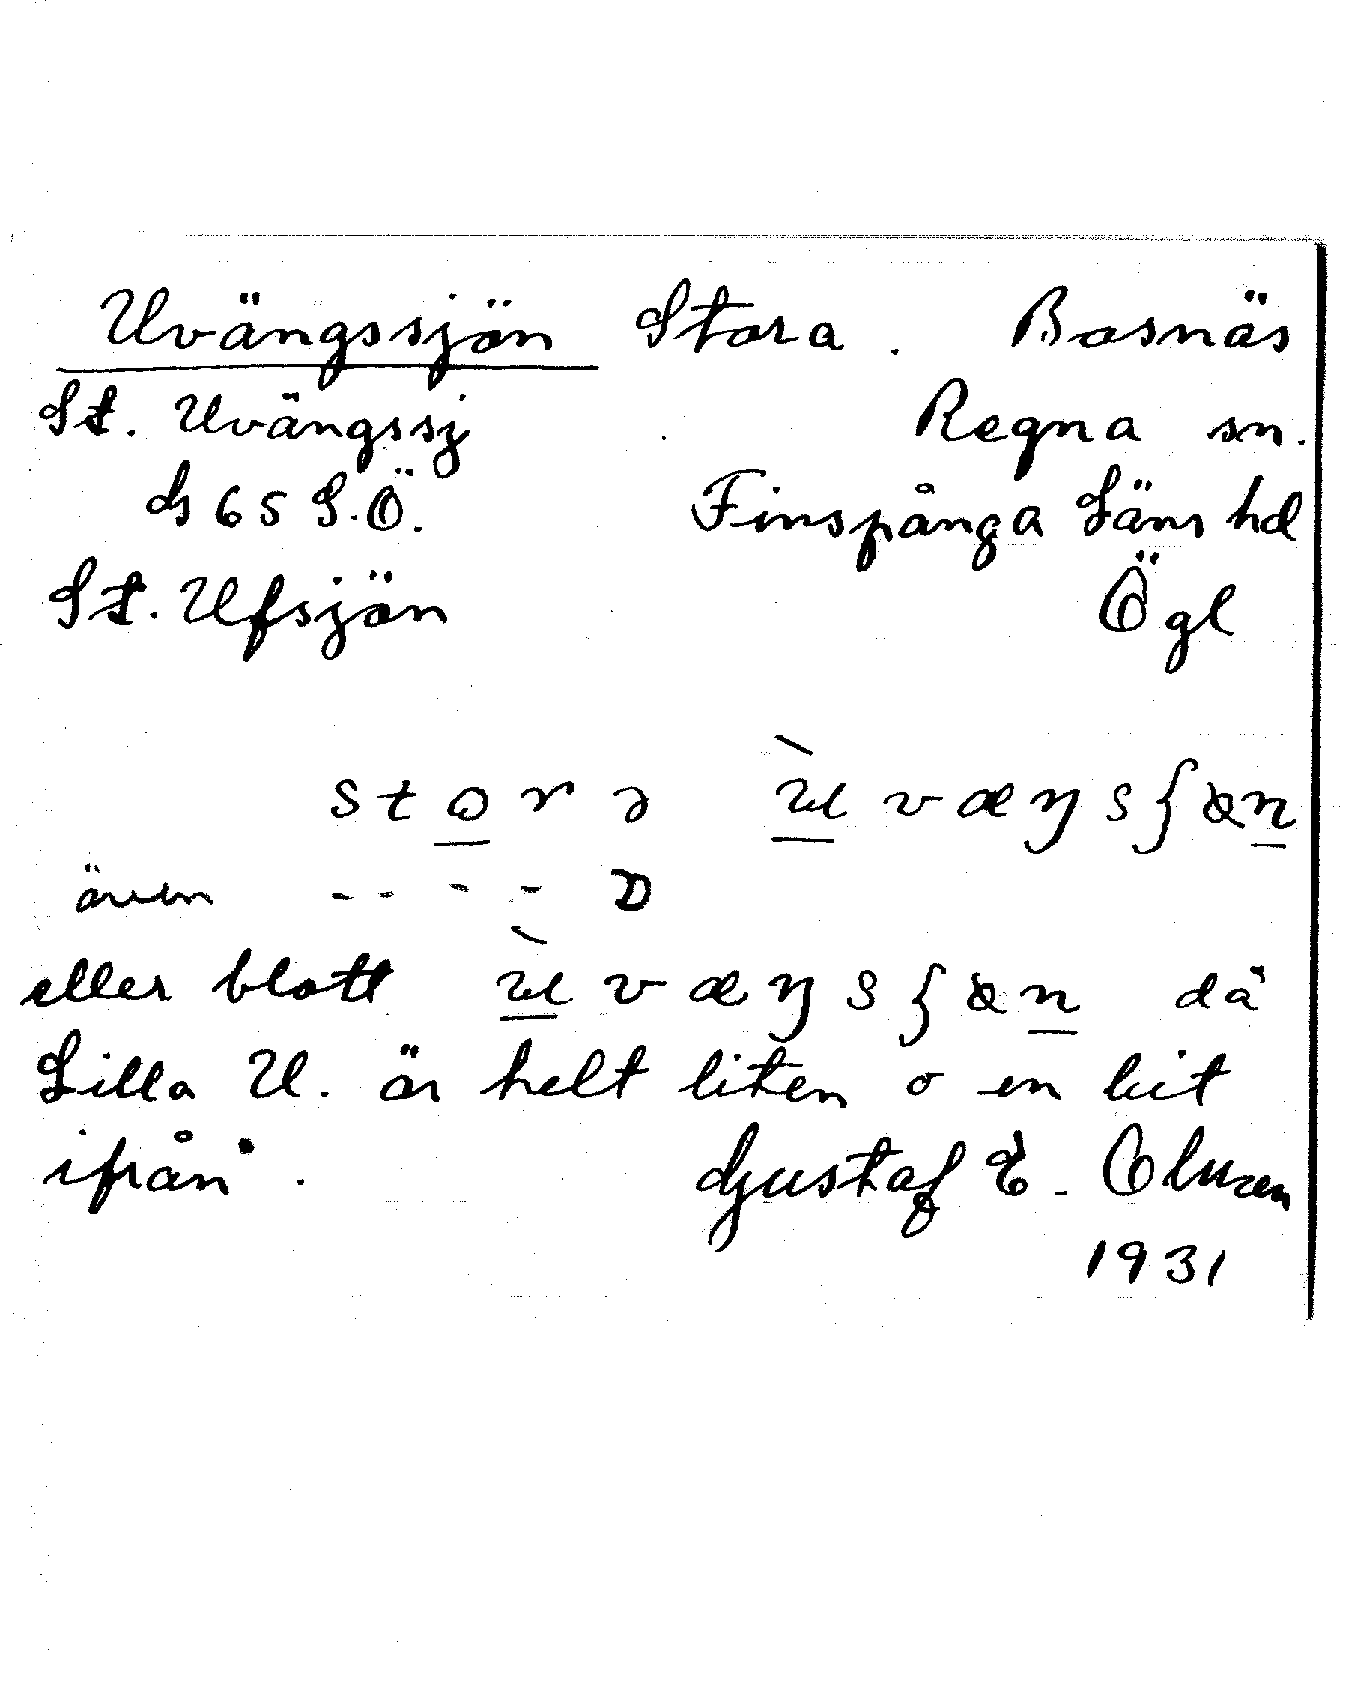 Uvängssjön Stora. Bosnäs
St. Uvängssj Regna sn.
ds 65 S.Ö. Finspånga Läns hd
St. Ufsjön Ögl
storə ùvæŋsʃɷn
även - - - - ɒ
eller blott ùvæŋsʃɷn då
Lilla U. är helt liten o en bit
ifrån. Gustaf E.
1931